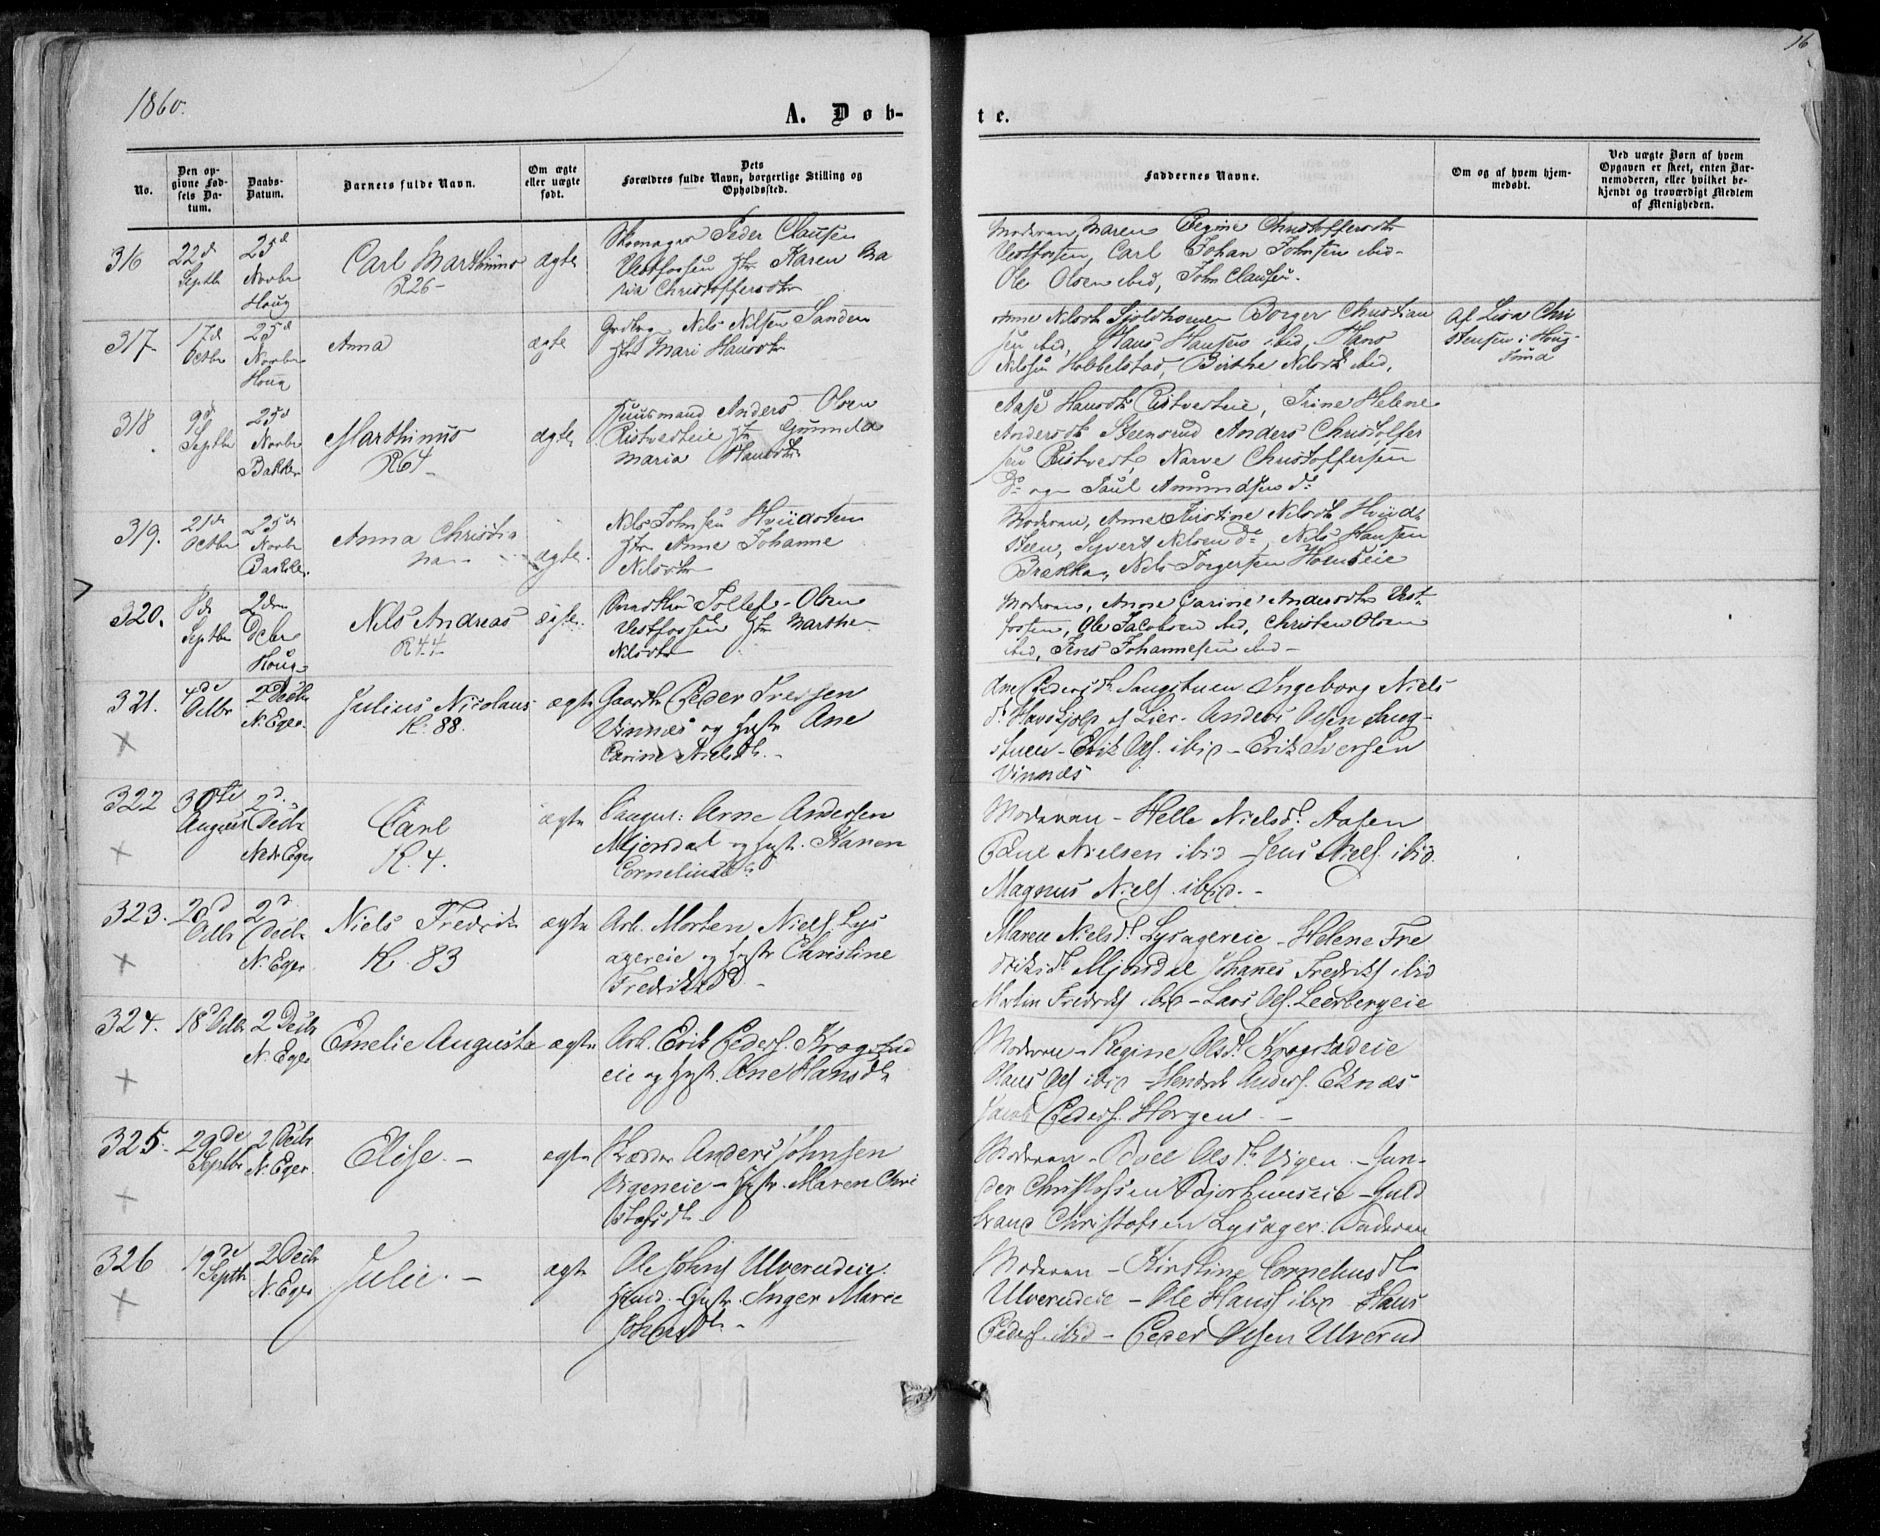 16
1860.
A. Døb-
te.
No.
Den op-
givne Fød-
sels Da-
tum.
Daabs-
Datum.
Barnets fulde Navn.
Om ægte
eller uægte
født.
Dets
Forældres fulde Navn, borgerlige Stilling og
Opholdssted.
Faddernes Navne.
Om og af hvem hjem-
medøbt.
Ved uægte Børn af hvem
Opgaven er skeet, enten Bar-
nemoderen, eller hvilket be-
kjendt og troværdigt Medlem
af Menigheden.
316
22d
Septbr
25d
Novbr
Houg
Carl Marthinus
R26-
ægte
Skomager Peder Clausen
Vestfossen Hr Karen Ma
ria Christoffersdtr
Moderen, Maren Regine Christoffersdtr
Vestfossen, Carl Johan Johnsen ibid-
Ole Olsen ibid, John Clausen.
317
17d
Octbr
25d
Novbr
Houg
Anna
ægte
Nils Nilsen Sanden
Hr Mari Hansdtr
Anne Nilsdtr Borger Christian
sen ibid, Hans Hansen ibid, Hans
Nilssen Hobbelstad, Birthe Nilsdtr ibid,
Af Lisa Chri
stensen i Houg-
sund
318
9d
Septbr
25d
Novbr
Bakke
Marthinus
R64-
ægte
Huusmand Anders Olsen
Ristvedteie Hr Gunnild
Maria Hansdtr
Aase Hansdtr Ristvedteie, Trine Helene
Andersdtr Steensrud Anders Christoffer
sen Ristvedt, Narve Christoffersen
Do og Paul Amundsen do
319.
21d
Octbr
25d
Novbr
Bakke.
Anna Christia
na-
ægte.
Nils Johnsen Hviidsteen
Hr Anne Johanne
Nilsdtr
Moderen, Anne Kirstine Nilsdtr Hviid-
steen, Syvert Nilsen Do, Nils Hansen
Brekke, Nils Torgersen Homseie
320.
8de
Septbr
2den
Debr
Houg
Nils Andreas
R44-
ægte.
Tollef Olsen
Vestfossen Hr Marthe
Nilsdtr
Moderen, Anne Carine Andersdtr Vest-
fossen, Ole Jacobsen ibid, Christen Olsen
ibid, Jens Johannesen ibid-
321.
4de
Octbr
2 Decbr
N. Eger.
Julius Nicolaus
K. 88.
ægte
Gaardbr Peder Iversen
Vinnæs og Hustr Ane
Carine Nielsdtr. -
Ane Pedersdtr Saugstuen Ingeborg Niels
dtr. af Lier. Anders Olsen Saug-
stuen - Erik Ols. ibid - Erik Iversen
Vinnæs
322
30te
August
2d.
Decbr
Nedr Eger
Carl
K. 4.
ægte
Arne Andersen
Mjøndal og Hustr. Karen
Corneliusdtr
Moderen - Helle Nielsdtr. Aasen
Paul Nielsen ibid - Jens Niels. ibid.
Magnus Niels. ibid. -
323.
2d
Octbr
2d
Decbr
N. Eger
Niels Fredrik
K. 83
ægte
Arb. Morten Niels. Lys
agereie og Hustr Christine
Fredriksdtr. -
Maren Nielsdtr. Lysagereie - Helene Fre
driksdtr. Mjøndal Johannes Fredriks. ibid
Morten Fredriks. ibid - Lars Ols. Leerbergeie
324.
18 Octbr
2 Decbr
N. Eger
Emelie Augusta
ægte
Arb. Erik Peders. Krogstad
eie og Hustr. Ane Hansdtr
Moderen - Regine Olsdtr. Krogstadeie
Olaus Ols. ibid - Hendrik Anders. Eknæs
Jacob Peders. Horgen. -
325.
29de
Septbr
2 Decbr
N. Eger.
Elise. -
ægte
Anders Johnsen
Vigeneie - Hustr. Maren Chri
stofsdtr
Moderen - Boel Olsdtr. Vigen. - Gun-
der Christofsen Bjorkhuuseie - Guld
brand Christofsen Lysager. Faderen
326
19de
Septbr
2 Decbr
N. Eger
Julie. -
ægte
Ole Johns. Ulverudeie.
Huusm. - Hustr. Inger Marie
Johnsdtr. -
Moderen - Kirstine Corneliusdtr
Ulverudeie - Ole Hans. ibid - Hans
Peders. ibid - Peder Olsen Ulverud